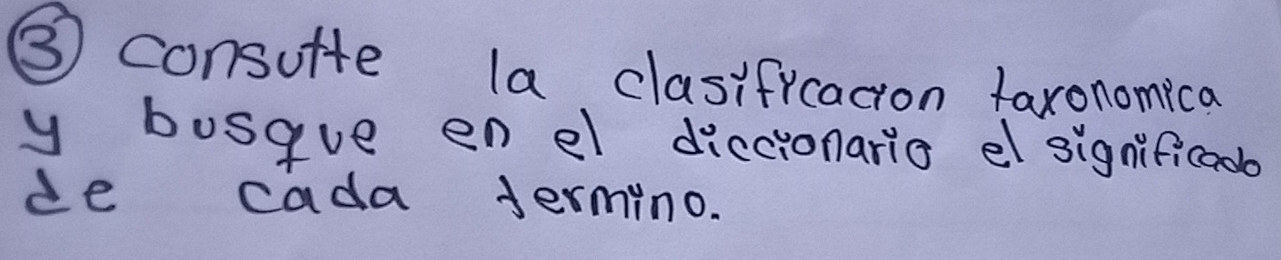 ③ Consulte la clasificacion taxonomica
y busque en el diccionario el significado
de cada termino.